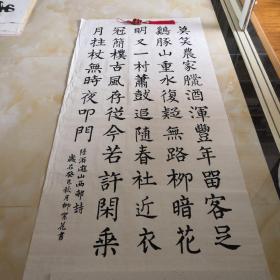 莫笑農家臘酒渾豐年留客足
鷄豚山重水復疑無路柳暗花
明又一村蕭鼓追隨春社近衣
冠簡樸古風存從今若許閑乘
月拄杖無時夜叩門
陸游遊山西邨詩
歲在癸巳秋月柳